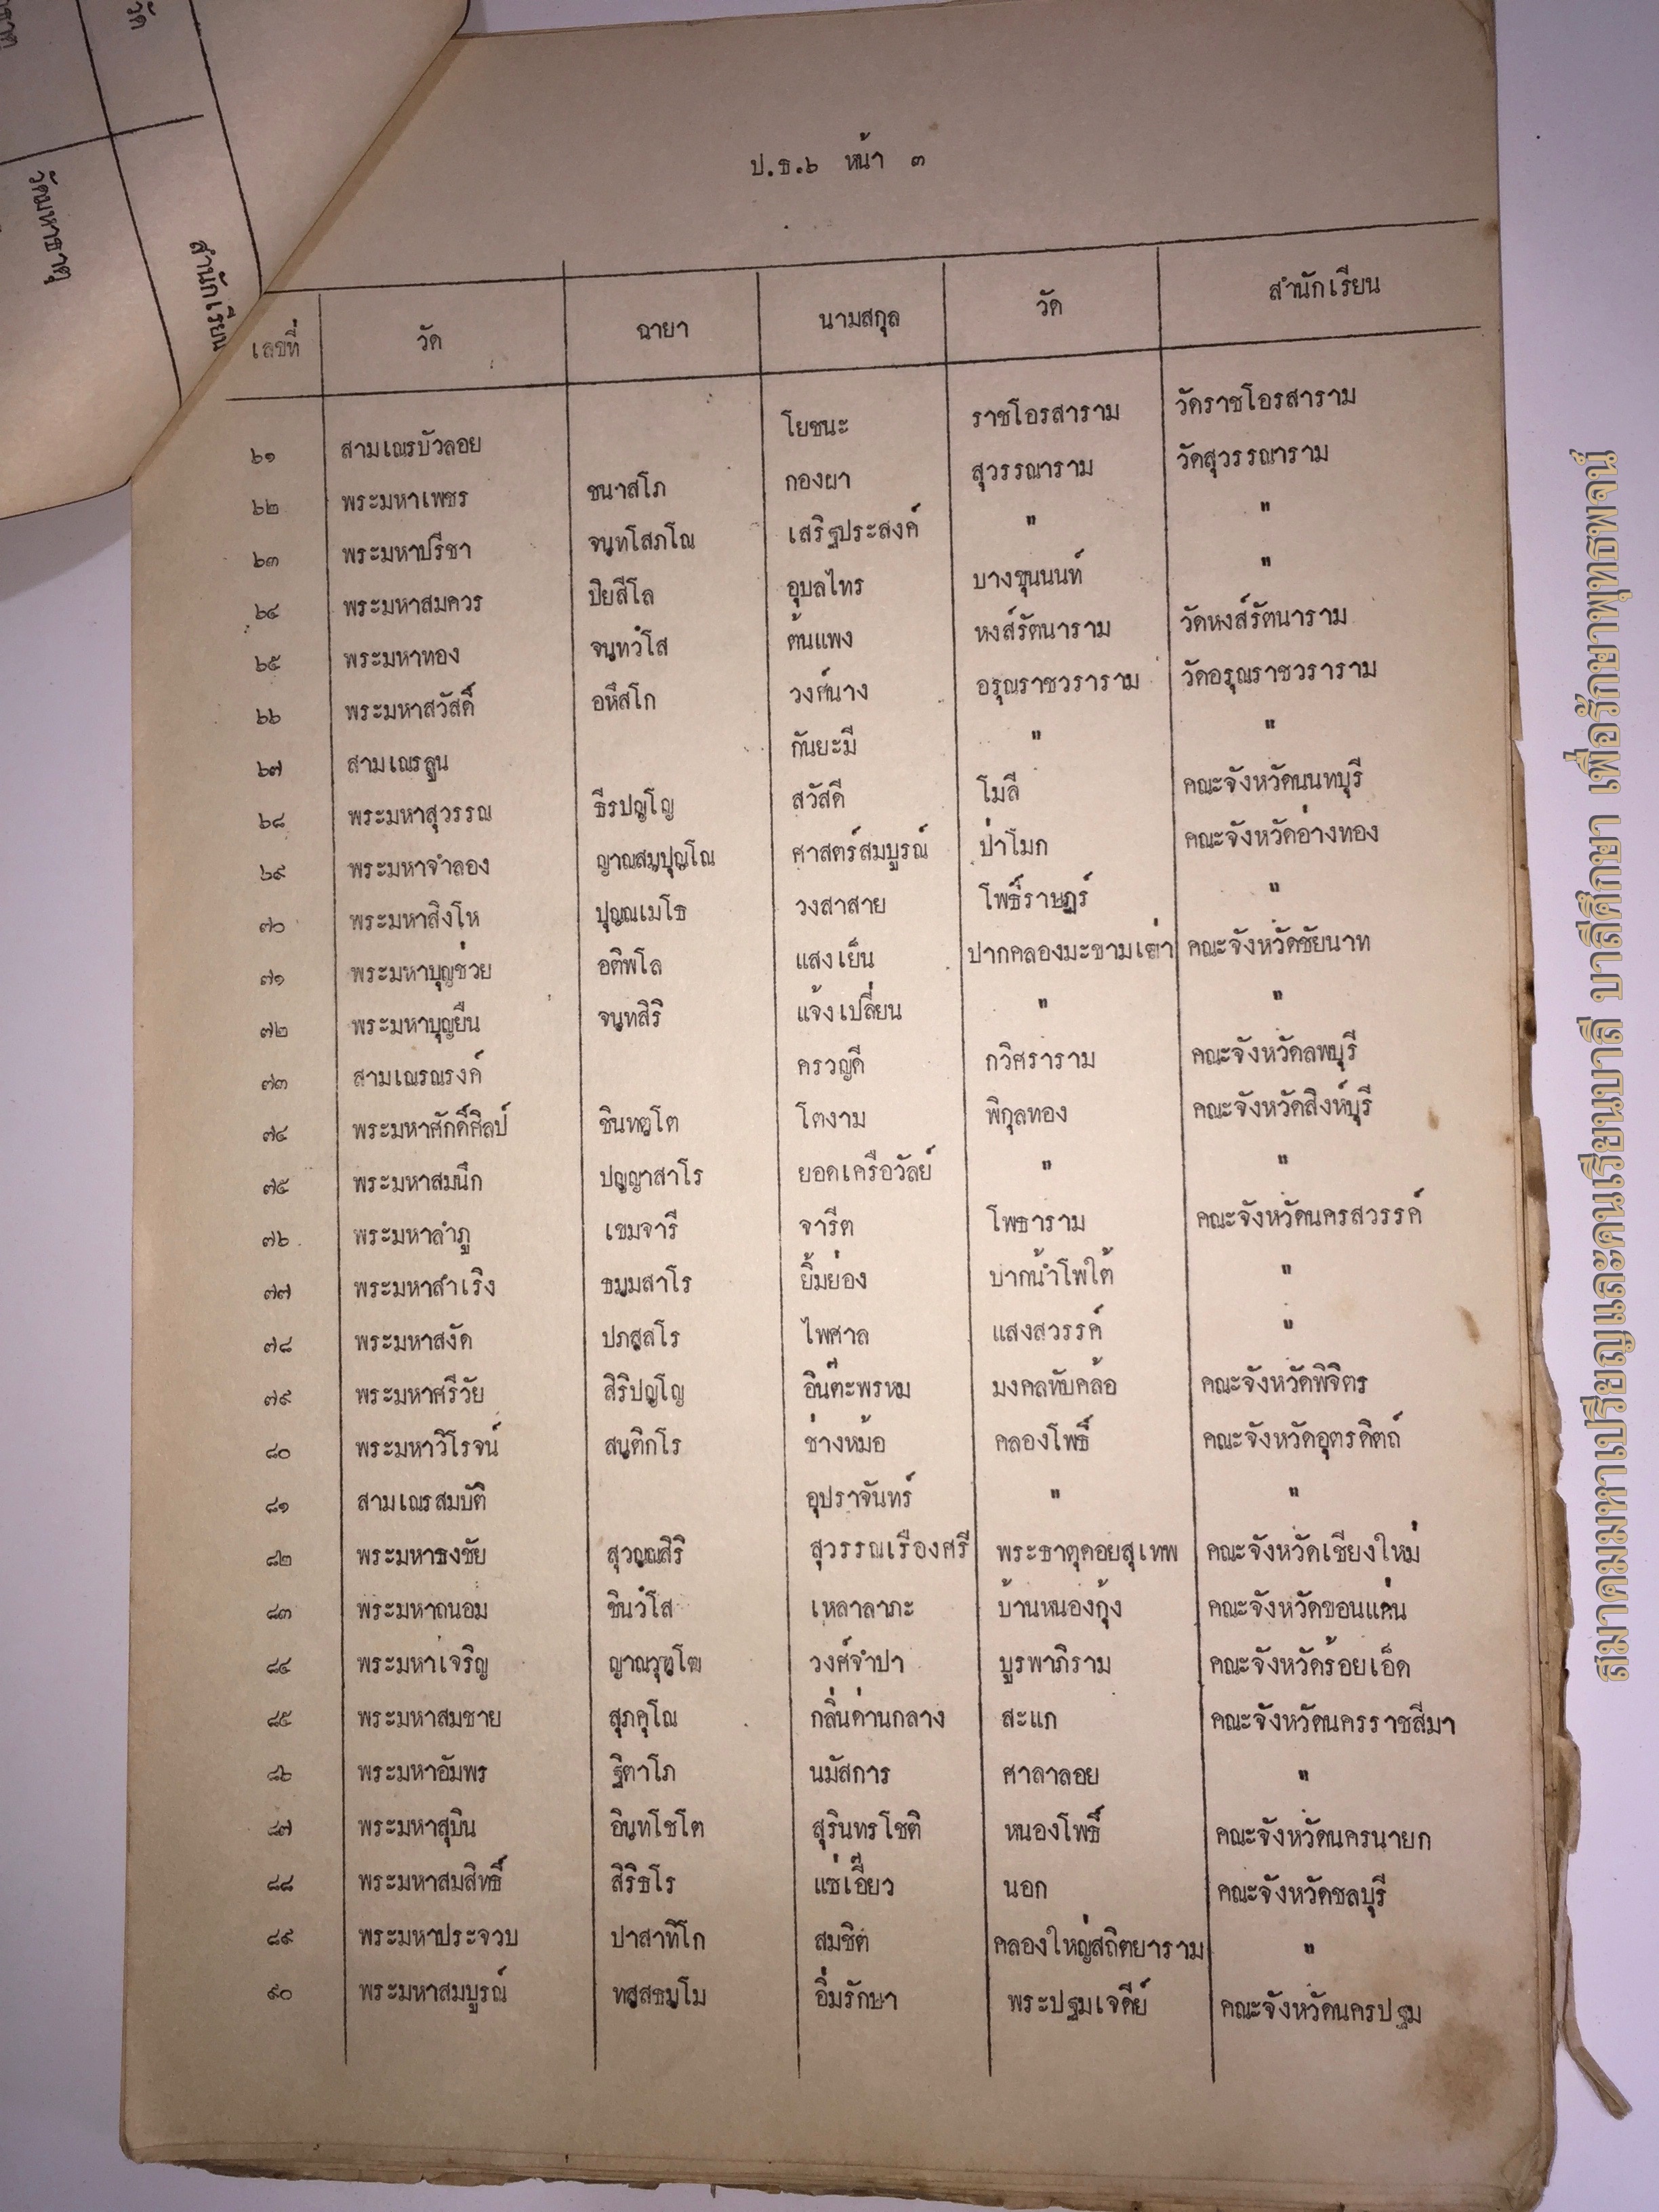 ป.ธ.๖ หน้า ๓
เลขที่ วัด ฉายา นามสกุล วัด สำนักเรียน
๖๑ สามเณรบัวลอย โยชนะ ราชโอรสาราม วัดราชโอรสาราม
๖๒ พระมหาเพชร ชนาสโภ กองผา สุวรรณาราม วัดสุวรรณาราม
๖๓ พระมหาปรีชา จนฺทโสภโณ เสริฐประสงค์ " "
๖๔ พระมหาสมควร ปิยสีโล อุบลไทร บางขุนนนท์ "
๖๕ พระมหาทอง จนฺทวํโส ต้นแพง หงส์รัตนาราม วัดหงส์รัตนาราม
๖๖ พระมหาสวัสดิ์ อหึสโก วงศ์นาง อรุณราชวราราม วัดอรุณราชวราราม
๖๗ สามเณรลูน กันยะมี " "
๖๘ พระมหาสุวรรณ ธีรปญฺโญ สวัสดี โมลี คณะจังหวัดนนทบุรี
๖๙ พระมหาจำลอง ญาณสมฺปุญฺโณ ศาสตร์สมบูรณ์ ป่าโมก คณะจังหวัดอ่างทอง
๗๐ พระมหาสิงโห ปุณฺณเมโธ วงสาสาย โพธิ์ราษฎร์ "
๗๑ พระมหาบุญช่วย อติพโล แสงเย็น ปากคลองมะขามเฒ่า คณะจังหวัดชัยนาท
๗๒ พระมหาบุญยืน จนฺทสิริ แจ้งเปลี่ยน " "
๗๓ สามเณรณรงค์ ครวญดี กวิศราราม คณะจังหวัดลพบุรี
๗๔ พระมหาศักดิ์ศิลป์ ชินทตฺโต โตงาม พิกุลทอง คณะจังหวัดสิงห์บุรี
๗๕ พระมหาสมนึก ปญฺญาสาโร ยอดเครือวัลย์ " "
๗๖ พระมหาลำภู เขมจารี จารีต โพธาราม คณะจังหวัดนครสวรรค์
๗๗ พระมหาสำเริง ธมฺมสาโร ยิ้มย่อง ปากน้ำโพใต้ "
๗๘ พระมหาสงัด ปภสฺสโร ไพศาล แสงสวรรค์ "
๗๙ พระมหาศรีวัย สิริปญฺโญ อินต๊ะพรหม มงคลทับคล้อ คณะจังหวัดพิจิตร
๘๐ พระมหาวิโรจน์ สนฺติกโร ช่างหม้อ คลองโพธิ์ คณะจังหวัดอุตรดิตถ์
๘๑ สามเณรสมบัติ อุปราจันทร์ " "
๘๒ พระมหาธงชัย สุวณฺณสิริ สุวรรณเรืองศรี พระธาตุดอยสุเทพ คณะจังหวัดเชียงใหม่
๘๓ พระมหาถนอม ชินวํโส เหลาลาภะ บ้านหนองกุ้ง คณะจังหวัดขอนแก่น
๘๔ พระมหาเจริญ ญาณวุฑฺโฒ วงศ์จำปา บูรพาภิราม คณะจังหวัดร้อยเอ็ด
๘๕ พระมหาสมชาย สุภคุโณ กลิ่นด่านกลาง สะแก คณะจังหวัดนครราชสีมา
๘๖ พระมหาอัมพร ฐิตาโภ นมัสการ ศาลาลอย "
๘๗ พระมหาสุบิน อินฺทโชโต สุรินทรโชติ หนองโพธิ์ คณะจังหวัดนครนายก
๘๘ พระมหาสมสิทธิ์ สิริธโร แซ่เอี๊ยว นอก คณะจังหวัดชลบุรี
๘๙ พระมหาประจวบ ปาสาทิโก สมชิต คลองใหญ่สถิตยาราม "
๙๐ พระมหาสมบูรณ์ ทสฺสธมฺโม อิ่มรักษา พระปฐมเจดีย์ คณะจังหวัดนครปฐม
วัด
วัดมหาธาตุ
สำนักเรียน
สมาคมมหาเปรียญและคนเรียนบาลี บาลีศึกษา เพื่อรักษาพุทธพจน์